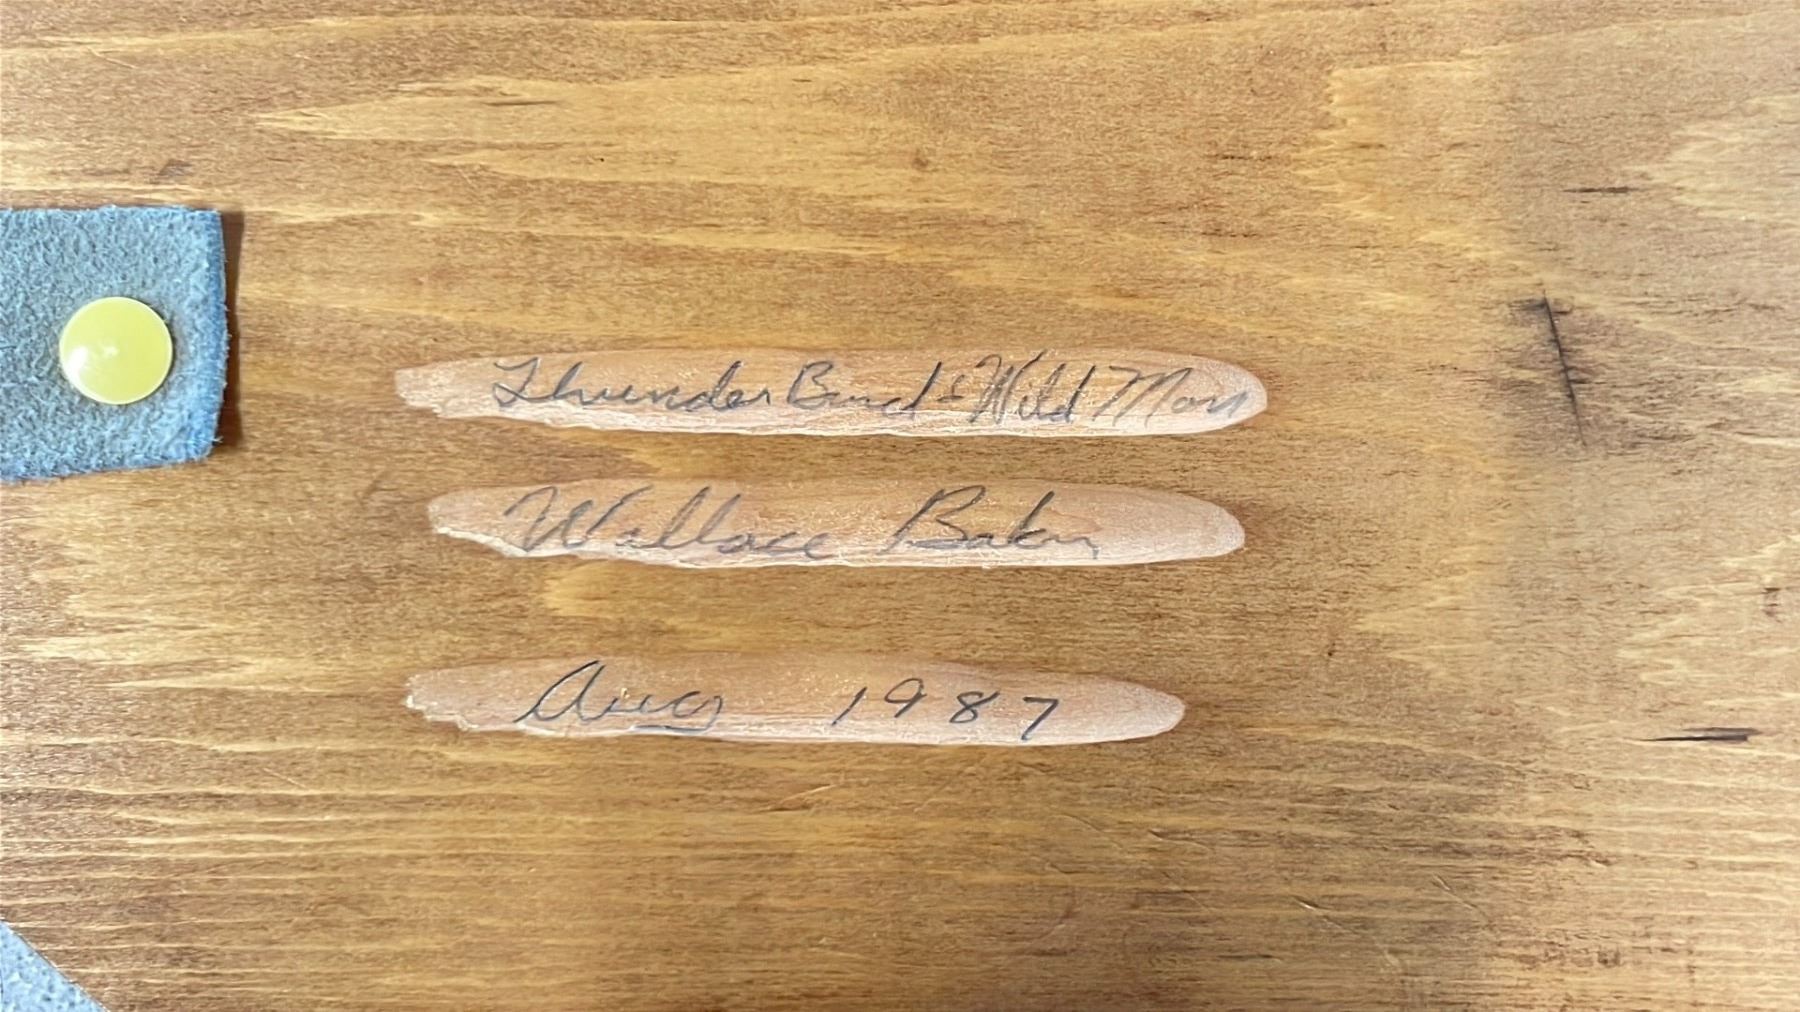 Thunder Bird & Wild Man
Wallace Baker
Aug 1987